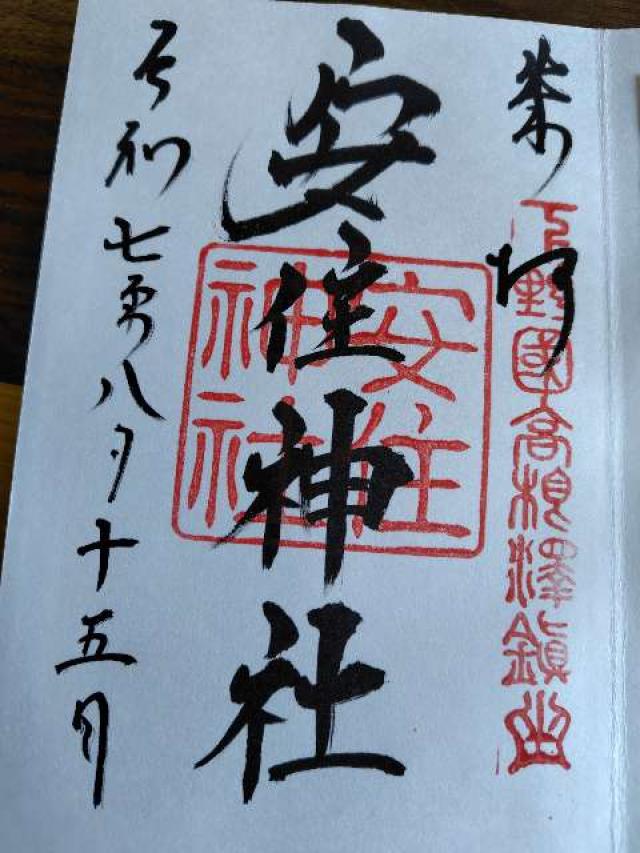 奉拝
下野國高根澤鎮守
安住神社
安住神社
令和七年八月十五日